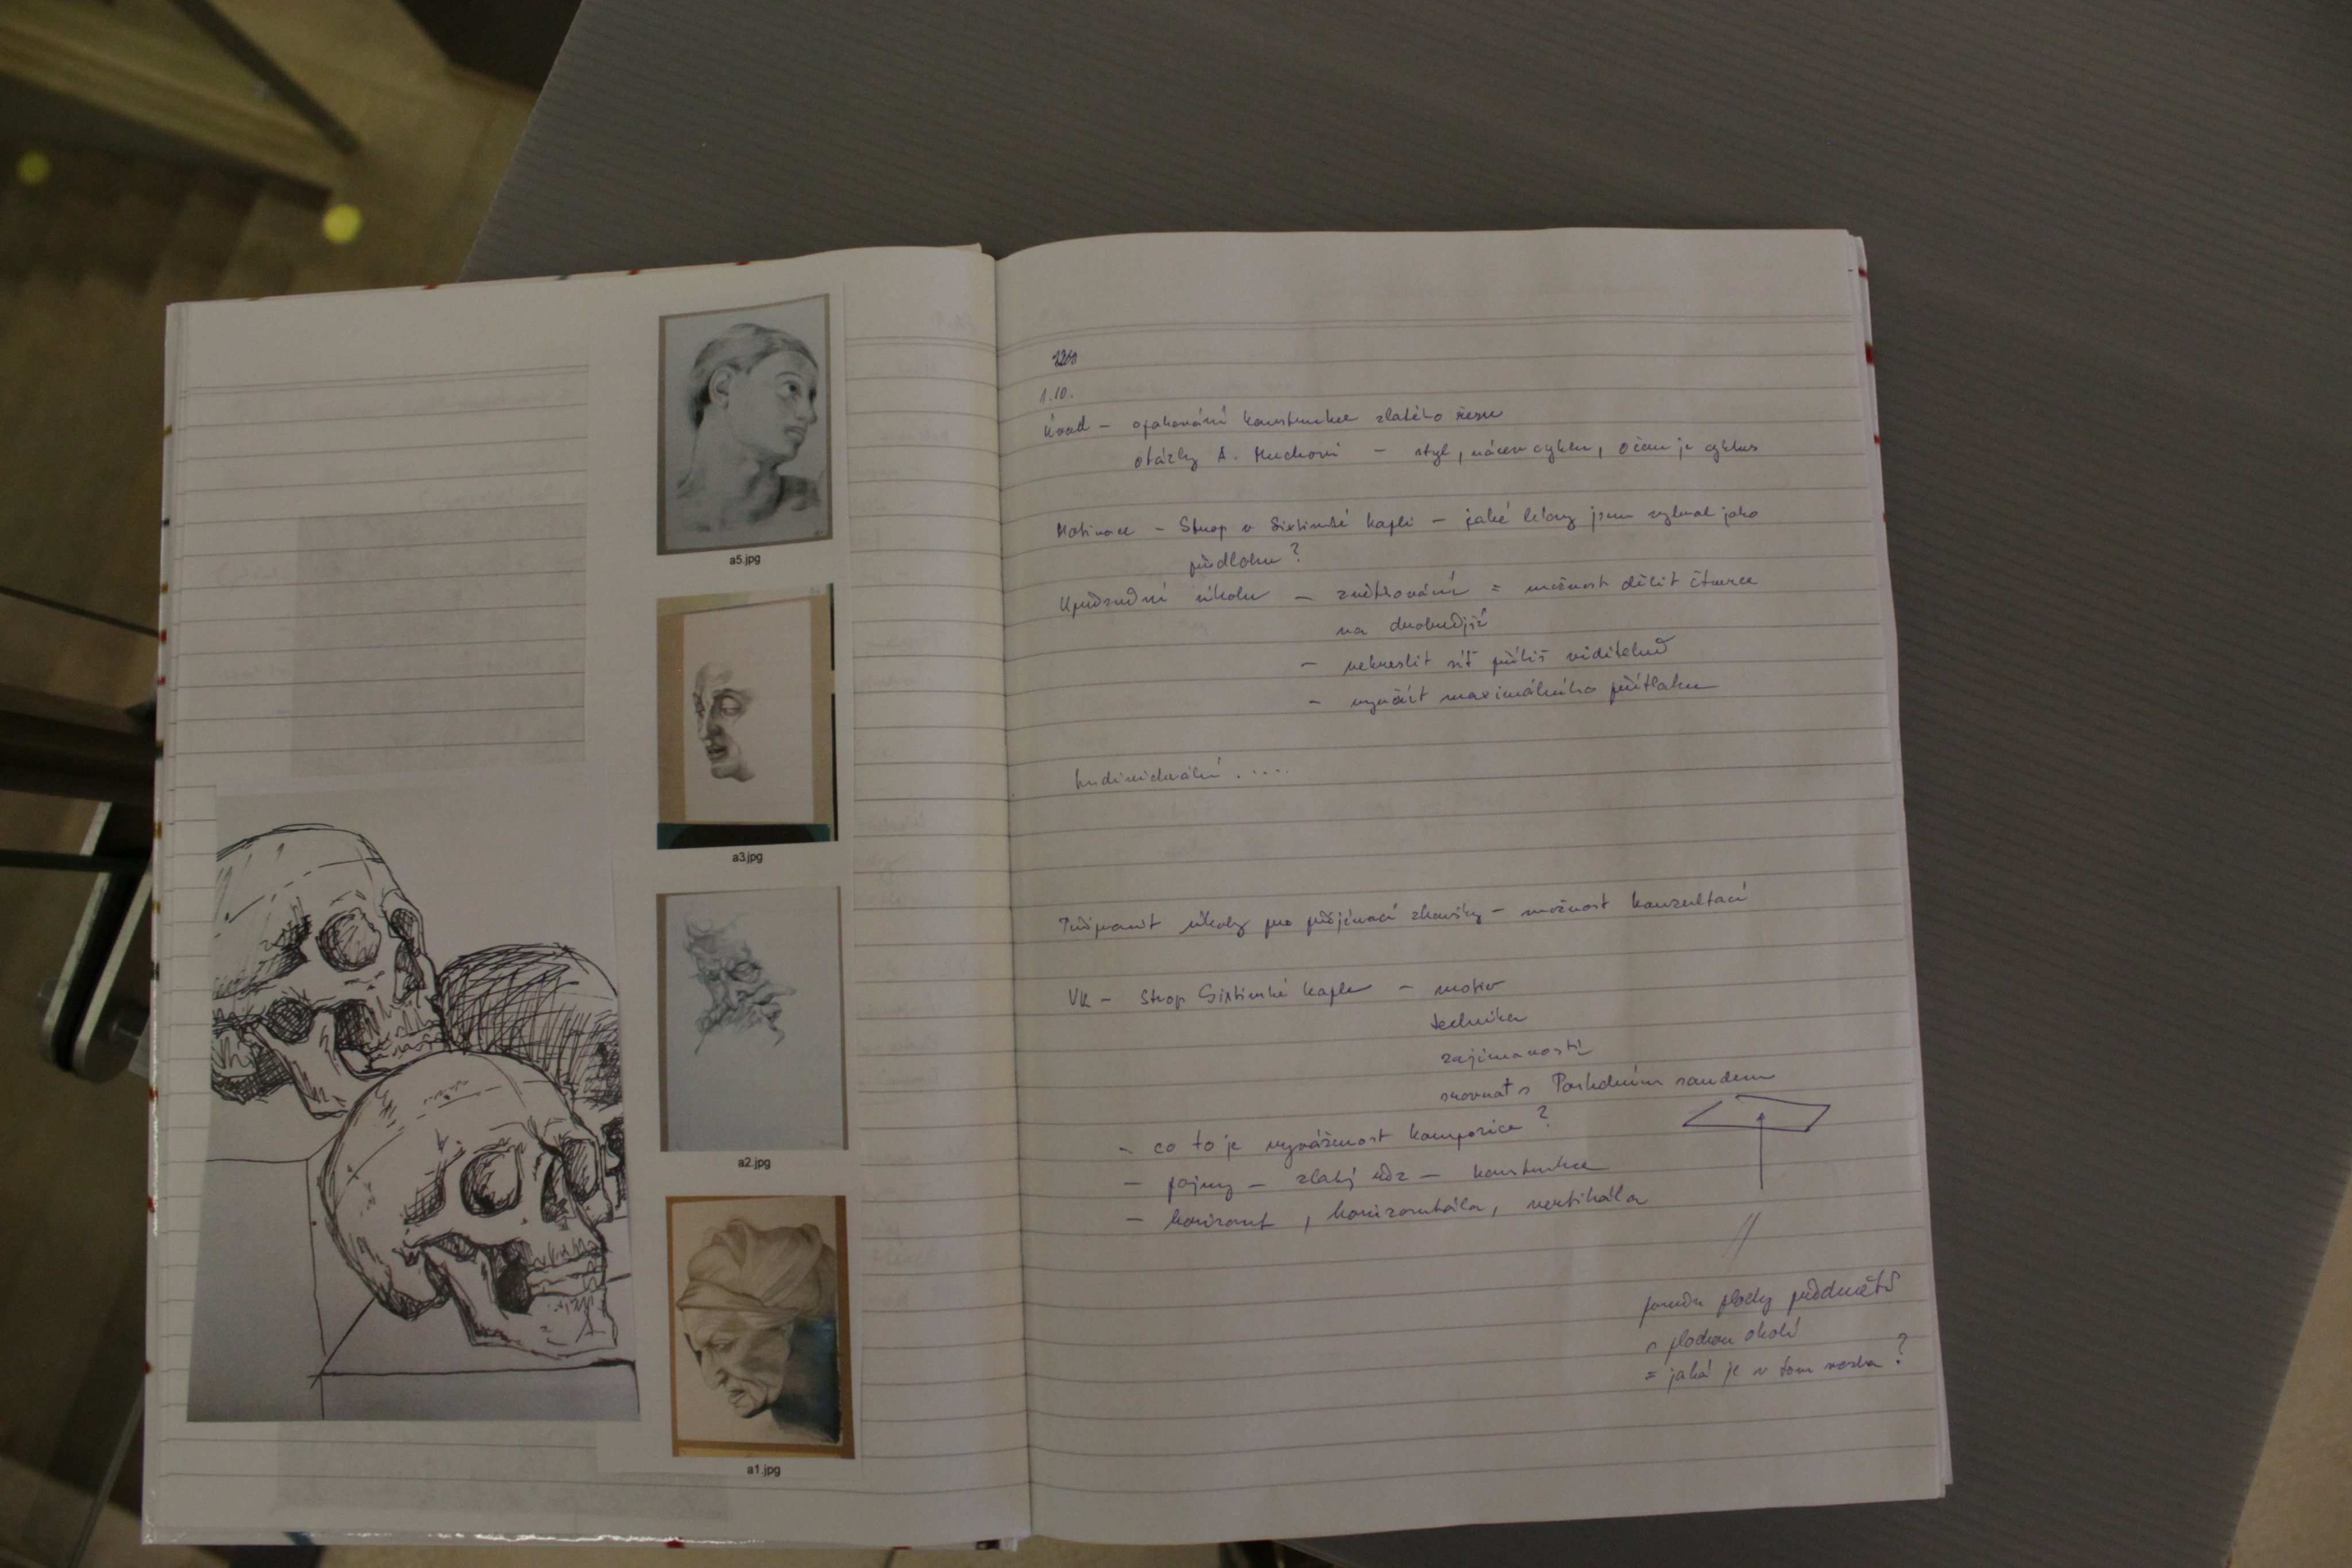 a5.jpg
a3.jpg
a2.jpg
a1.jpg
1.10.
Úvod – opakování konstrukce zlatého řezu
otázky A. Muchovi – styl, název cyklu, o čem je cyklus
Motivace – Strop v Sixtinské kapli – jaké lekce jsem vybral jako
předlohu?
Upřesnění úkolu – zvětšování = možnost dělit čtverce
na drobnější
– nekreslit síť příliš viditelně
– využít maximálního přítlaku
Individuální .....
Připravit úkoly pro přijímací zkoušky – možnost konzultací
VK – Strop Sixtinské kaple – motiv
technika
zajímavosti
srovnat s Posledním soudem
– co to je vyváženost kompozice?
– pojmy – zlatý řez – konstrukce
– horizont, horizontála, vertikála
plochy předmětů
s plochou okolí
= jaká je v tom vazba?